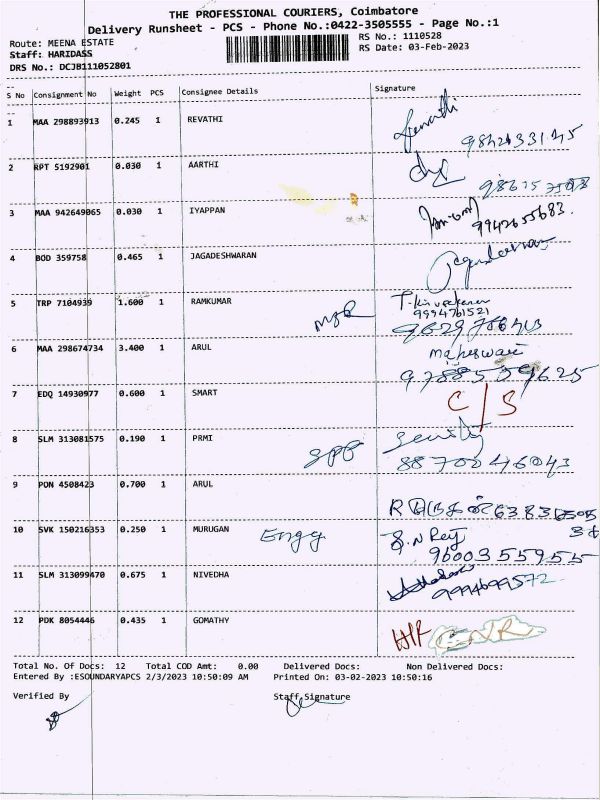 THE PROFESSIONAL COURIERS, Coimbatore
Delivery Runsheet - PCS - Phone No.:0422-3505555 - Page No.:1
Route: MEENA ESTATE
RS No.: 1110528
Staff: HARIDASS
RS Date: 03-Feb-2023
DRS No.: DCJB111052801
S No Consignment No Weight PCS Consignee Details Signature
1 MAA 298893913 0.245 1 REVATHI Revathi
2 RPT 5192901 0.030 1 AARTHI
3 MAA 942649065 0.030 1 IYAPPAN 9942655683.
4 BOD 359758 0.465 1 JAGADESHWARAN
5 TRP 7104939 1.600 1 RAMKUMAR
9994761521
6 MAA 298674734 3.400 1 ARUL Maheswari
7 EDQ 14930977 0.600 1 SMART C/S
8 SLM 313081575 0.190 1 PRMI
8870046043
9 PON 4508423 0.700 1 ARUL
10 SVK 150216353 0.250 1 MURUGAN Engg
9600355955
11 SLM 313099470 0.675 1 NIVEDHA
9994699572
12 PDK 8054446 0.435 1 GOMATHY
Total No. Of Docs: 12 Total COD Amt: 0.00 Delivered Docs: Non Delivered Docs:
Entered By :ESOUNDARYAPCS 2/3/2023 10:50:09 AM Printed On: 03-02-2023 10:50:16
Verified By Staff Signature